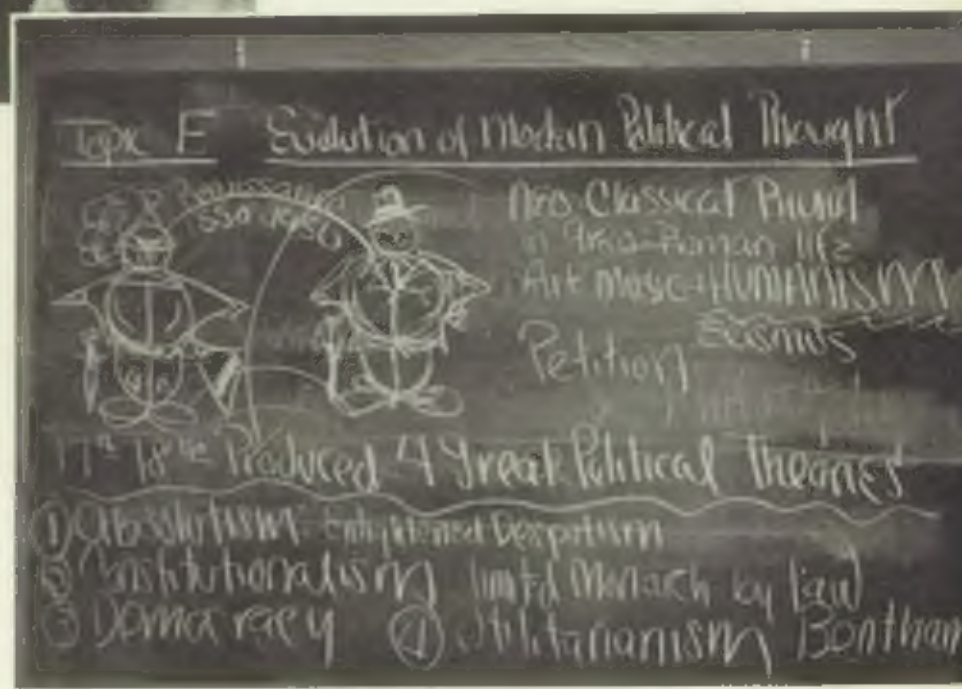 Topic E Evolution of Modern Political Thought
Renaissance
550 years
Neo-Classical Period
in Greco-Roman life
Art Music - HUMANISM
Petition Erasmus
17th 18th Produced 4 great Political Theories
① Absolutism - Enlightened Despotism
② Constitutionalism limitd Monarch by law
③ Democracy ④ Utilitarianism Bentham